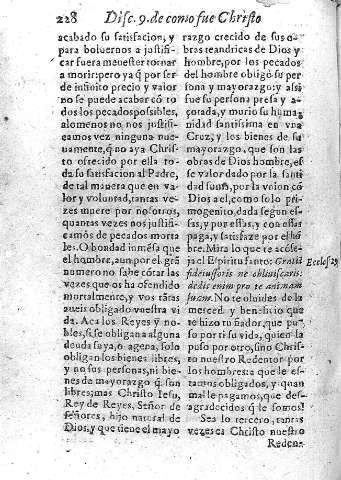 228 Disc. 9. de como fue Christo
acabado su satisfacion, y
para boluernos a justifi-
car fuera menester tornar
a morir: pero ya q̃ por ser
de infinito precio y valor
no se puede acabar cõ to
dos los pecados posibles,
alomenos no nos justifi-
camos vez ninguna nue-
uamente, q̃ no aya Christo
ofrecido por ella to-
da su satisfacion al Padre,
de tal manera que en va-
lor y voluntad, tantas ve-
zes muere por nosotros,
quantas vezes nos justifi-
camos de pecados morta
les. O bondad inmẽsa que
el hombre, aun por el grã
numero no sabe cõtar las
vezes que os ha ofendido
mortalmente, y vos tãtas
aueis obligado vuestra vi
da. Aca los Reyes y no-
bles, si se obligan a alguna
deuda suya, o agena, solo
obligan los bienes libres,
y no sus personas, ni bie-
nes de mayorazgo q̃ son
libres; mas Christo Iesu,
Rey de Reyes, Señor de
señores, hijo natural de
Dios, y que tiene el mayo
razgo crecido de sus o
bras teandricas de Dios y
hombre, por los pecados
del hombre obligò su per
sona y mayorazgo: y assi
fue su persona presa y a-
çotada, y murio su huma
nidad santissima en vna
Cruz; y los bienes de su
mayorazgo, que son las
obras de Dios hombre, es
se valor dado por la santi
dad suma, por la vnion cõ
Dios a el, como solo pri-
mogenito, dada segun es-
sas, y por essas, y con essas
paga, y satisfaze por el hõ
bre. Mira lo que te acõse-
ja el Espiritu santo: Gratiã
fideiussoris ne obliuiscaris:
dedit enim pro te animam
suam. No te oluides de la
merced y beneficio que
te hizo tu fiador, que pu-
so por ti su vida, quien la
puso por otro, sino Chris-
to nuestro Redentor por
los hombres: a que le es-
tamos obligados, y quan
mal le pagamos, que des-
agradecidos q̃ le somos!
Sea lo tercero, tantas
vezes ca Christo nuestro
Reden-
Eccles. 29